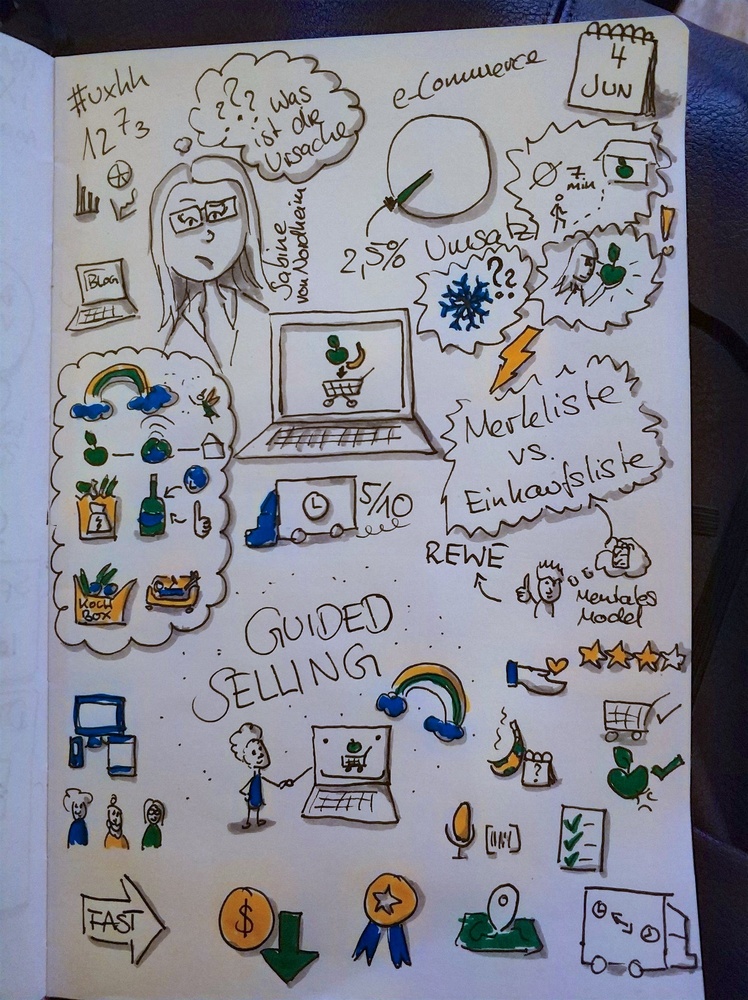 #uxhh
12 7 3
??? was
ist die
Ursache
e-Commerce
4
JUN
Sabine
von Nordheim
2,5%
Umsatz
Ø 7
min
!
??
BLOG
Merkliste
vs.
Einkaufsliste
5/10
REWE
Mentales
Model
KOCH
BOX
GUIDED
SELLING
?
FAST
$